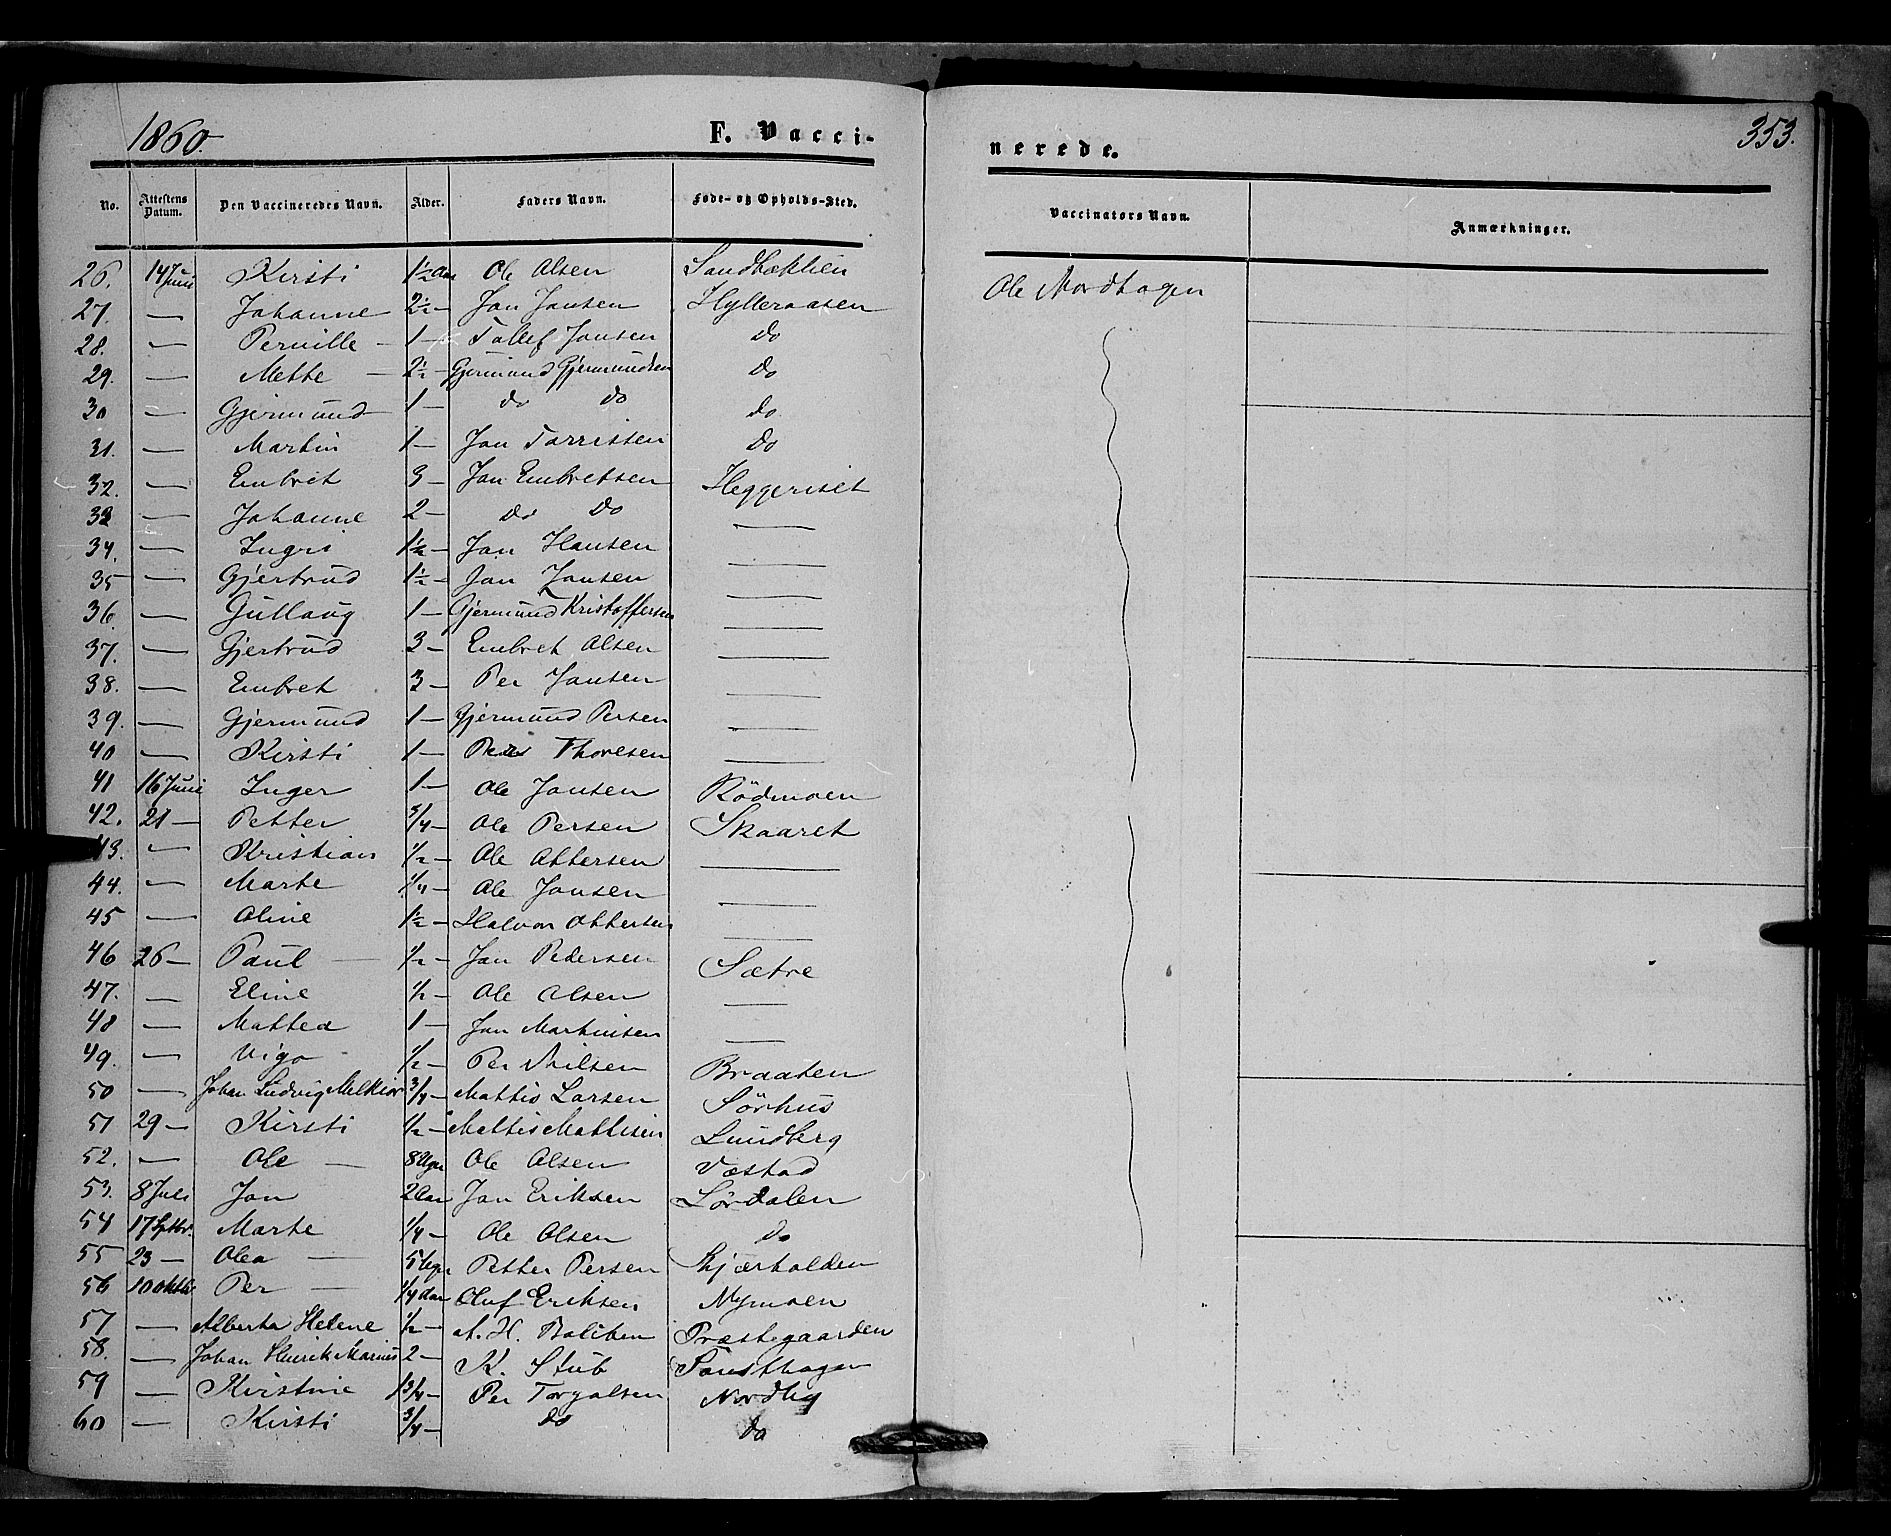 1860.
F. Vacci-
nerede.
353.
No. Attestens Datum. Den Vaccineredes Navn. Alder. Faders Navn. Føde- og Opholds-Sted. Vaccinatørs Navn. Anmærkninger.
26. 14 Juni Kirsti 1½ Aar Ole Olsen Sandbæklien Ole Nordhagen
27. — Johanne 2½ — Jon Jonsen Hylleraasen
28. — Pernille — 1 — Tollef Jonsen do
29. — Mette — 2½ — Gjermund Gjermundsen do
30 — Gjermund 1 — do do do
31. — Martin 1 — Jon Torristen do
32. — Embret 3 — Jon Embretsen Heggeriset
33 — Johanne 2 — do do —
34. — Ingri 1½ — Jon Hansen —
35 — Gjertrud 1½ — Jon Jonsen —
36. — Gullaug 1 — Gjermund Kristoffersen —
37. — Gjertrud 3 — Embret Olsen —
38. — Embret 3 — Per Jonsen —
39. — Gjermund 1 — Gjermund Persen —
40 — Kirsti 1 — Peder Thoresen —
41 16 Juni Inger 1 — Ole Jonsen Rödmoen
42. 21 — Petter 3/4 — Ole Persen Skaaret
43. — Kristian ½ — Ole Ottersen —
44. — Marte 1/4 — Ole Jonsen —
45 — Oline 1½ — Halvor Ottersen —
46 26 — Paul — ½ — Jon Pedersen Sætre
47. — Eline ½ — Ole Olsen —
48 — Mattea 1 — Jon Martinsen —
49. — Vigo ½ — Per Nilsen Braaten
50 — Johan Ludvig Melkior 3/4 — Mattis Larsen Sörhus
51 29 — Kirsti ½ — Mattis Mattisen Lundberg
52. — Ole — 8 Uger Ole Olsen Væstad
53. 8 Juli Jon 2 Aar Jon Eriksen Sørdalen
54 17 Septbr. Marte 1/4 — Ole Olsen do
55 23 — Olea — 5 Uger Petter Persen Skjærholden
56 10 Oktbr Per — 1/4 Aar Oluf Eriksen Nymoen
57 — Alberta Helene ½ — A. H. Præstegaarden
58. — Johan Henrik Marius 2 — K. Stub
59 — Kirstine 1 3/4 — Per Torgalsen Nordby
60 — Kirsti 3/4 — do do